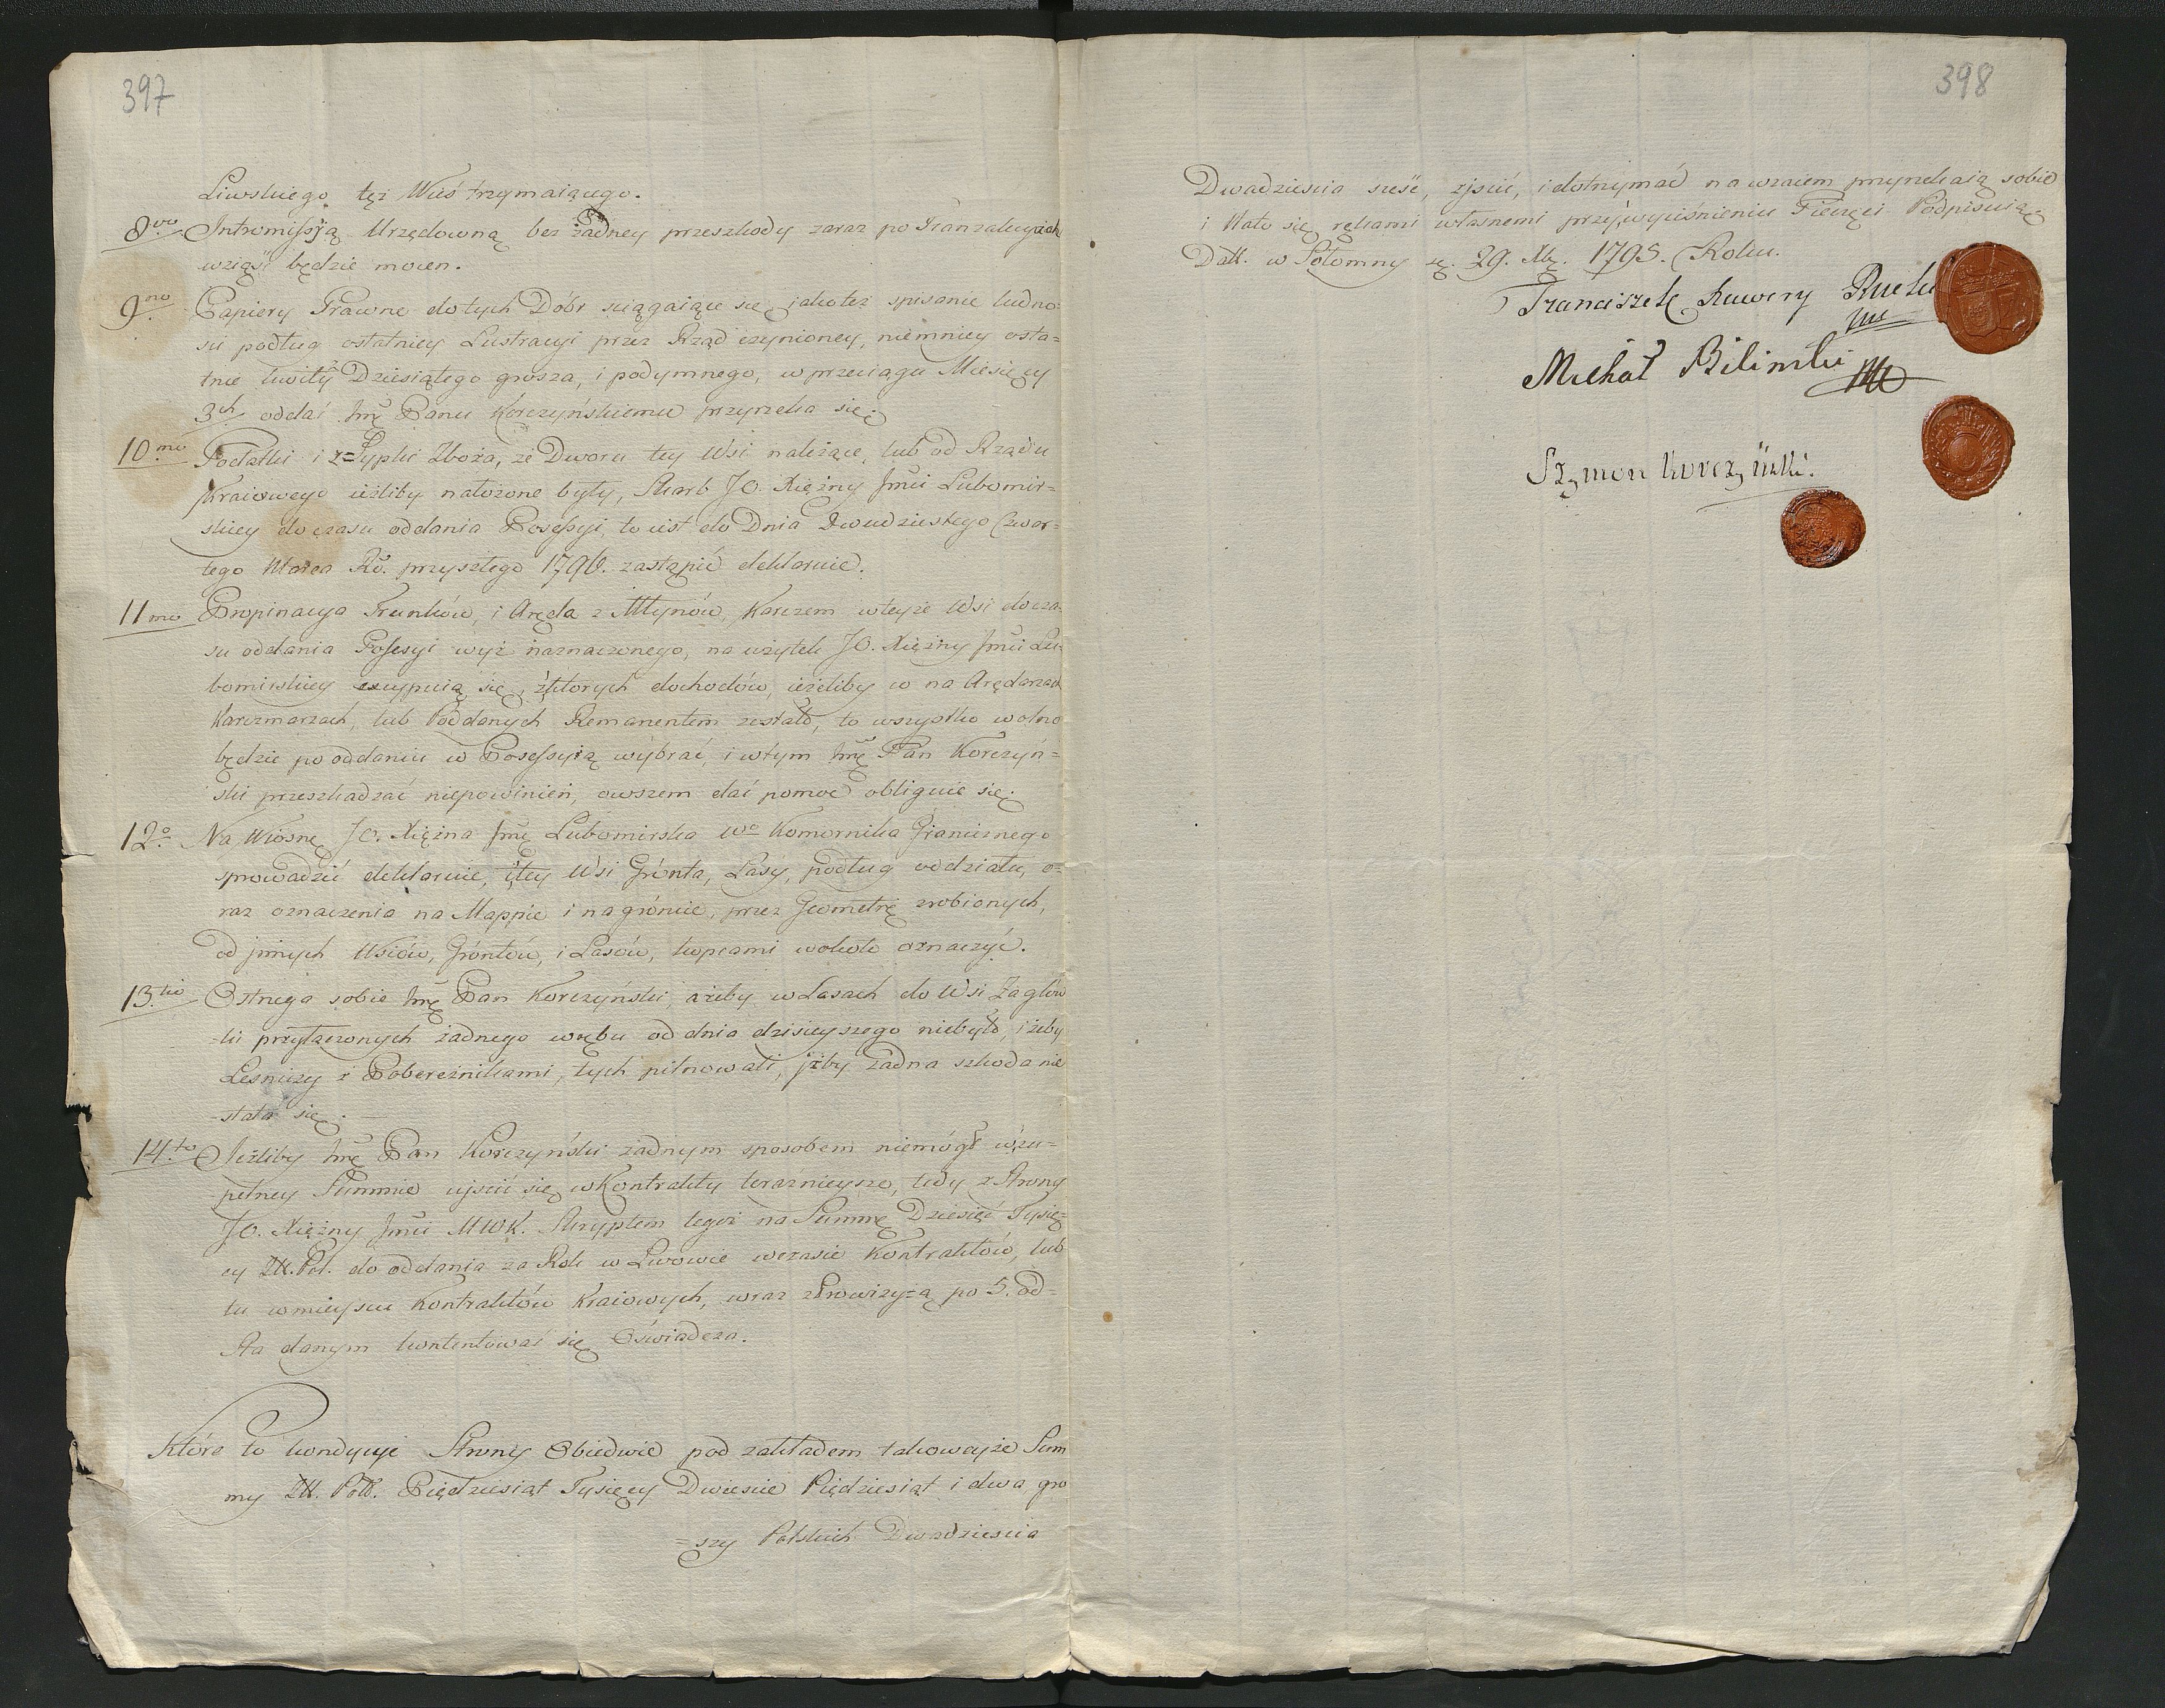 397
Liwskiego tęż Wieś trzymaiącego.
8vo Intromissyją Urzędowną bez żadney przeszkody zaraz po Tranzakcyiach
wziąść będzie mocen.
9no Papiery Prawne do tych Dóbr sciągaiące się, iako też spisanie ludno=
sci podług ostatniey Lustracyi przez Rząd czynioney, niemniey osta=
tnie kwity Dziesiątego grosza, i podymnego, w przeciągu Miesięcy
3ch oddać Jmę Panu Korczyńskiemu przyrzeka się.
10mo Podatki i zsypki Zboża, ze Dworu tey Wsi należące, lub od Rządu
Kraiowego ieżliby nałożone były, Skarb JO. Xiężny Jmći Lubomir=
skiey do czasu oddania Possessyi, to iest do Dnia Dwudziestego Czwar=
tego Marca Rő. przyszłego 1796. zastąpić deklaruie.
11mo Propinacya Trunków, i Aręda z Młynów, Karczem wteyże Wsi do cza=
su oddania Possesyi wyż naznaczonego, na użytek JO. Xiężny Jmći Lu=
bomirskiey excypuią się, z których dochodów, ieżeliby co na Arędarzach
Karczmarzach, lub Poddanych Remanentem zostało, to wszystko wolno
będzie po oddaniu w Possessyią wybrać, i wtym Jmę Pan Korczyń=
ski przeszkadzać niepowinien, owszem dać pomoc obliguie się.
12o Na Wiosnę JO. Xiężna Jmę Lubomirska Wo Komornika Granicznego
sprowadzić deklaruie, i tey Wsi Grónta, Lasy, podług oddziału, o=
raz oznaczenia na Mappie i na gróncie, przez Jeometrę zrobionych,
od jnnych Wsiów, Gróntów, i Lasów, kopcami wokoło oznaczyć.
13tio Ostrzega sobie Jmę Pan Korczyński, ażeby w Lasach do Wsi Zagłów
=ki przyłączonych żadnego wrębu od dnia dzisieyszego niebyło, i żeby
Leśniczy z Pobereżnikami, tych pilnowali, jżby żadna szkoda nie
stała się. —
14to Jeżliby Jmę Pan Korczyński żadnym sposobem niemógł wzu=
pełney Summie ujscić się w Kontrakty teraźnieysze, tedy z Strony
JO. Xiężny Jmći MWK. Skryptem tegoż na Summę Dziesięć Tysię=
cy Złł. Pol. do oddania za Rok w Lwowie w czasie Kontraktów, lub
tu w mieyscu Kontraktów Kraiowych, wraz z Prowizyią po 5. od=
Sta danym kontentować się Oświadcza.
Które to kondycyje Strony Obiedwie pod zakładem takoweyże Sum
my Złł. Poll. Pięćdziesiąt Tysięcy Dwieście Pięćdziesiąt i dwa, gro
=szy Polskich Dwadziescia
398
Dwadziescia sześć, zjscić, i dotrzymać nawzaiem przyrzekaią sobie
i Nato się rękami własnemi przy wyciśnieniu Pieczęci Podpisuią.
Datt. w Połomny d. 29. Xbr. 1795. Roku.
Franciszek Xawery
Michał Biliński mp
Szymon Korczyński.